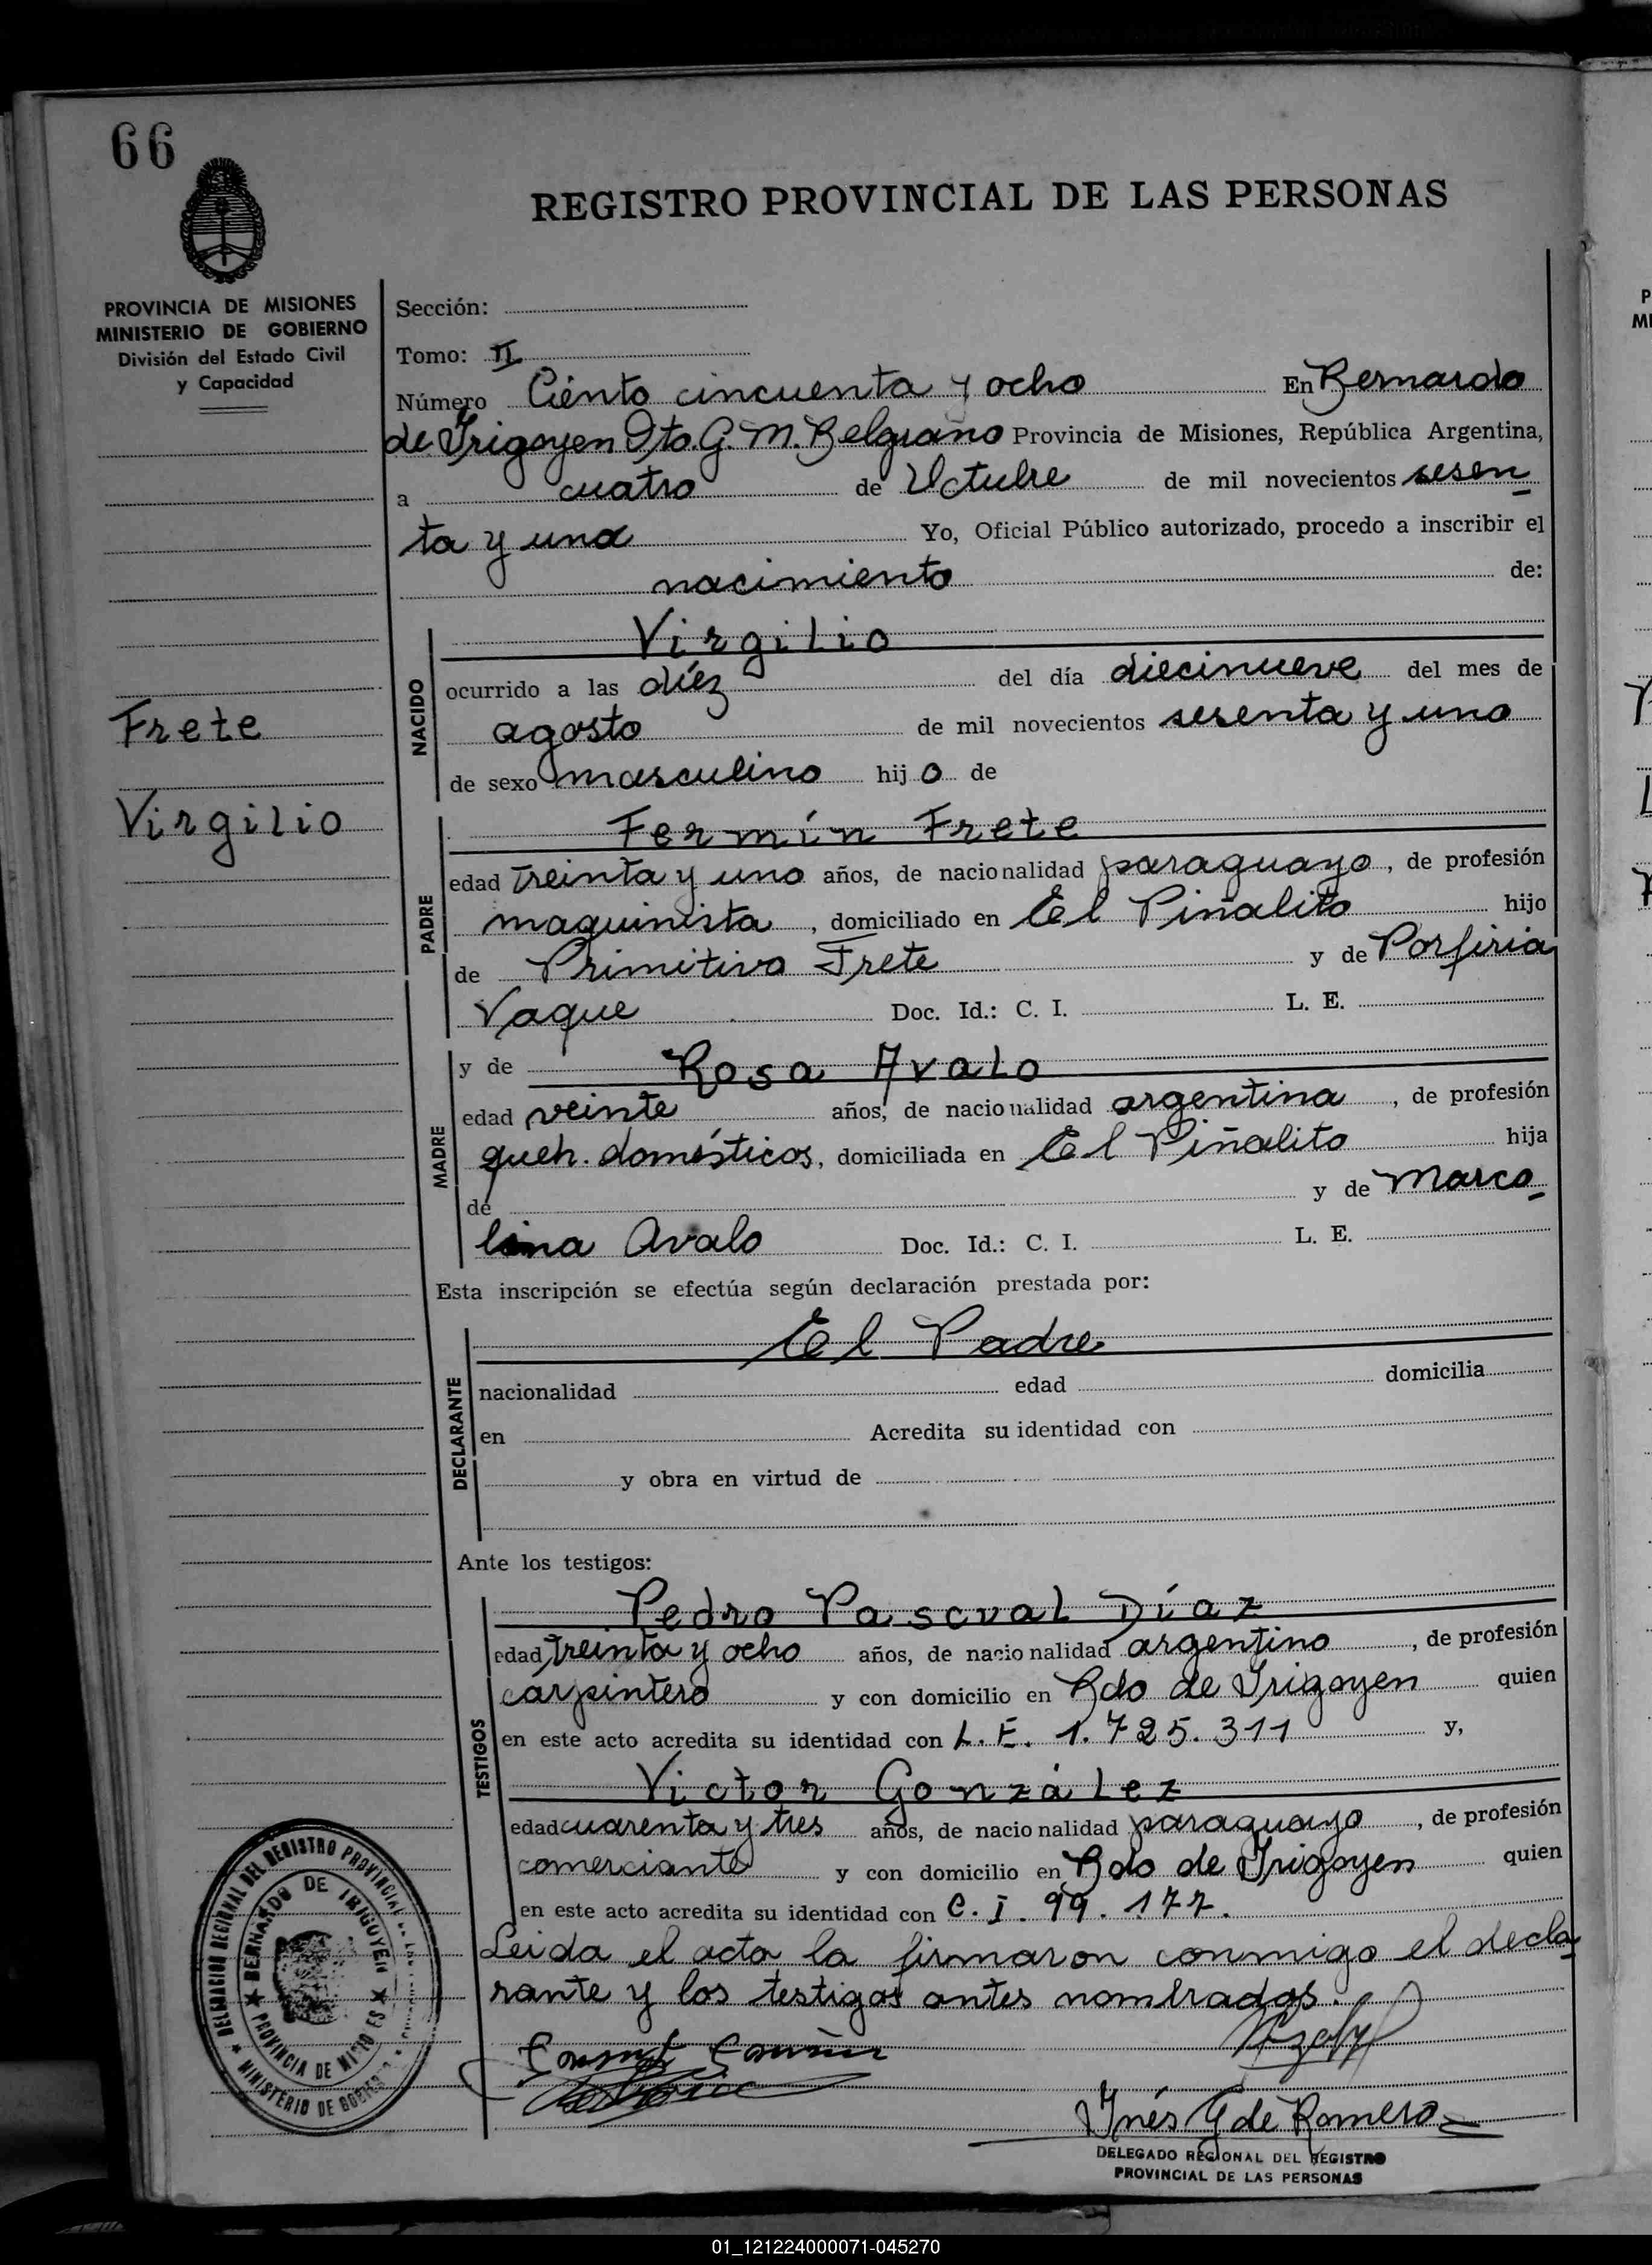 66
REGISTRO PROVINCIAL DE LAS PERSONAS
PROVINCIA DE MISIONES
MINISTERIO DE GOBIERNO
División del Estado Civil
y Capacidad
Sección:
Tomo: II
Número Ciento cincuenta y ocho En Bernardo
de Irigoyen Dto. G. M. Belgrano Provincia de Misiones, República Argentina,
a cuatro de Octubre de mil novecientos sesen
ta y uno Yo, Oficial Público autorizado, procedo a inscribir el
nacimiento de:
NACIDO
Virgilio
ocurrido a las diéz del día diecinueve del mes de
agosto de mil novecientos sesenta y uno
de sexo masculino hij o de
Frete
Virgilio
PADRE
Fermín Frete
edad treinta y uno años, de nacionalidad paraguayo, de profesión
maquinista, domiciliado en El Piñalito hijo
de Primitivo Frete y de Porfiria
Vaque Doc. Id.: C. I. L. E.
MADRE
y de Rosa Avalo
edad veinte años, de nacionalidad argentina, de profesión
queh. domésticos, domiciliada en El Piñalito hija
de y de Marce
lina Avalo Doc. Id.: C. I. L. E.
Esta inscripción se efectúa según declaración prestada por:
DECLARANTE
El Padre
nacionalidad edad domicilia
en Acredita su identidad con
y obra en virtud de
Ante los testigos:
TESTIGOS
Pedro Pascual Díaz
edad treinta y ocho años, de nacionalidad argentino, de profesión
carpintero y con domicilio en Bdo de Irigoyen quien
en este acto acredita su identidad con L. E. 1.725.311 y,
Victor González
edad cuarenta y tres años, de nacionalidad paraguayo, de profesión
comerciante y con domicilio en Bdo de Irigoyen quien
en este acto acredita su identidad con C. I. 99.177.
Leida el acta la firmaron conmigo el decla
rante y los testigos antes nombrados.
DELEGACION REGIONAL DEL REGISTRO PROVINCIAL
BERNARDO DE IRIGOYEN
PROVINCIA DE MISIONES
MINISTERIO DE GOBIERNO
Inés G de Romero
DELEGADO REGIONAL DEL REGISTRO
PROVINCIAL DE LAS PERSONAS
01_121224000071-045270